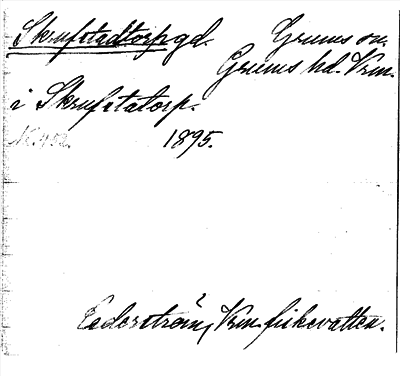 Skrufstadtorp gd. Grums sn.
Grums hd. Vrm.
i Skrufstatorp.
1895.
Cederström, Vrm. fiskevatten.